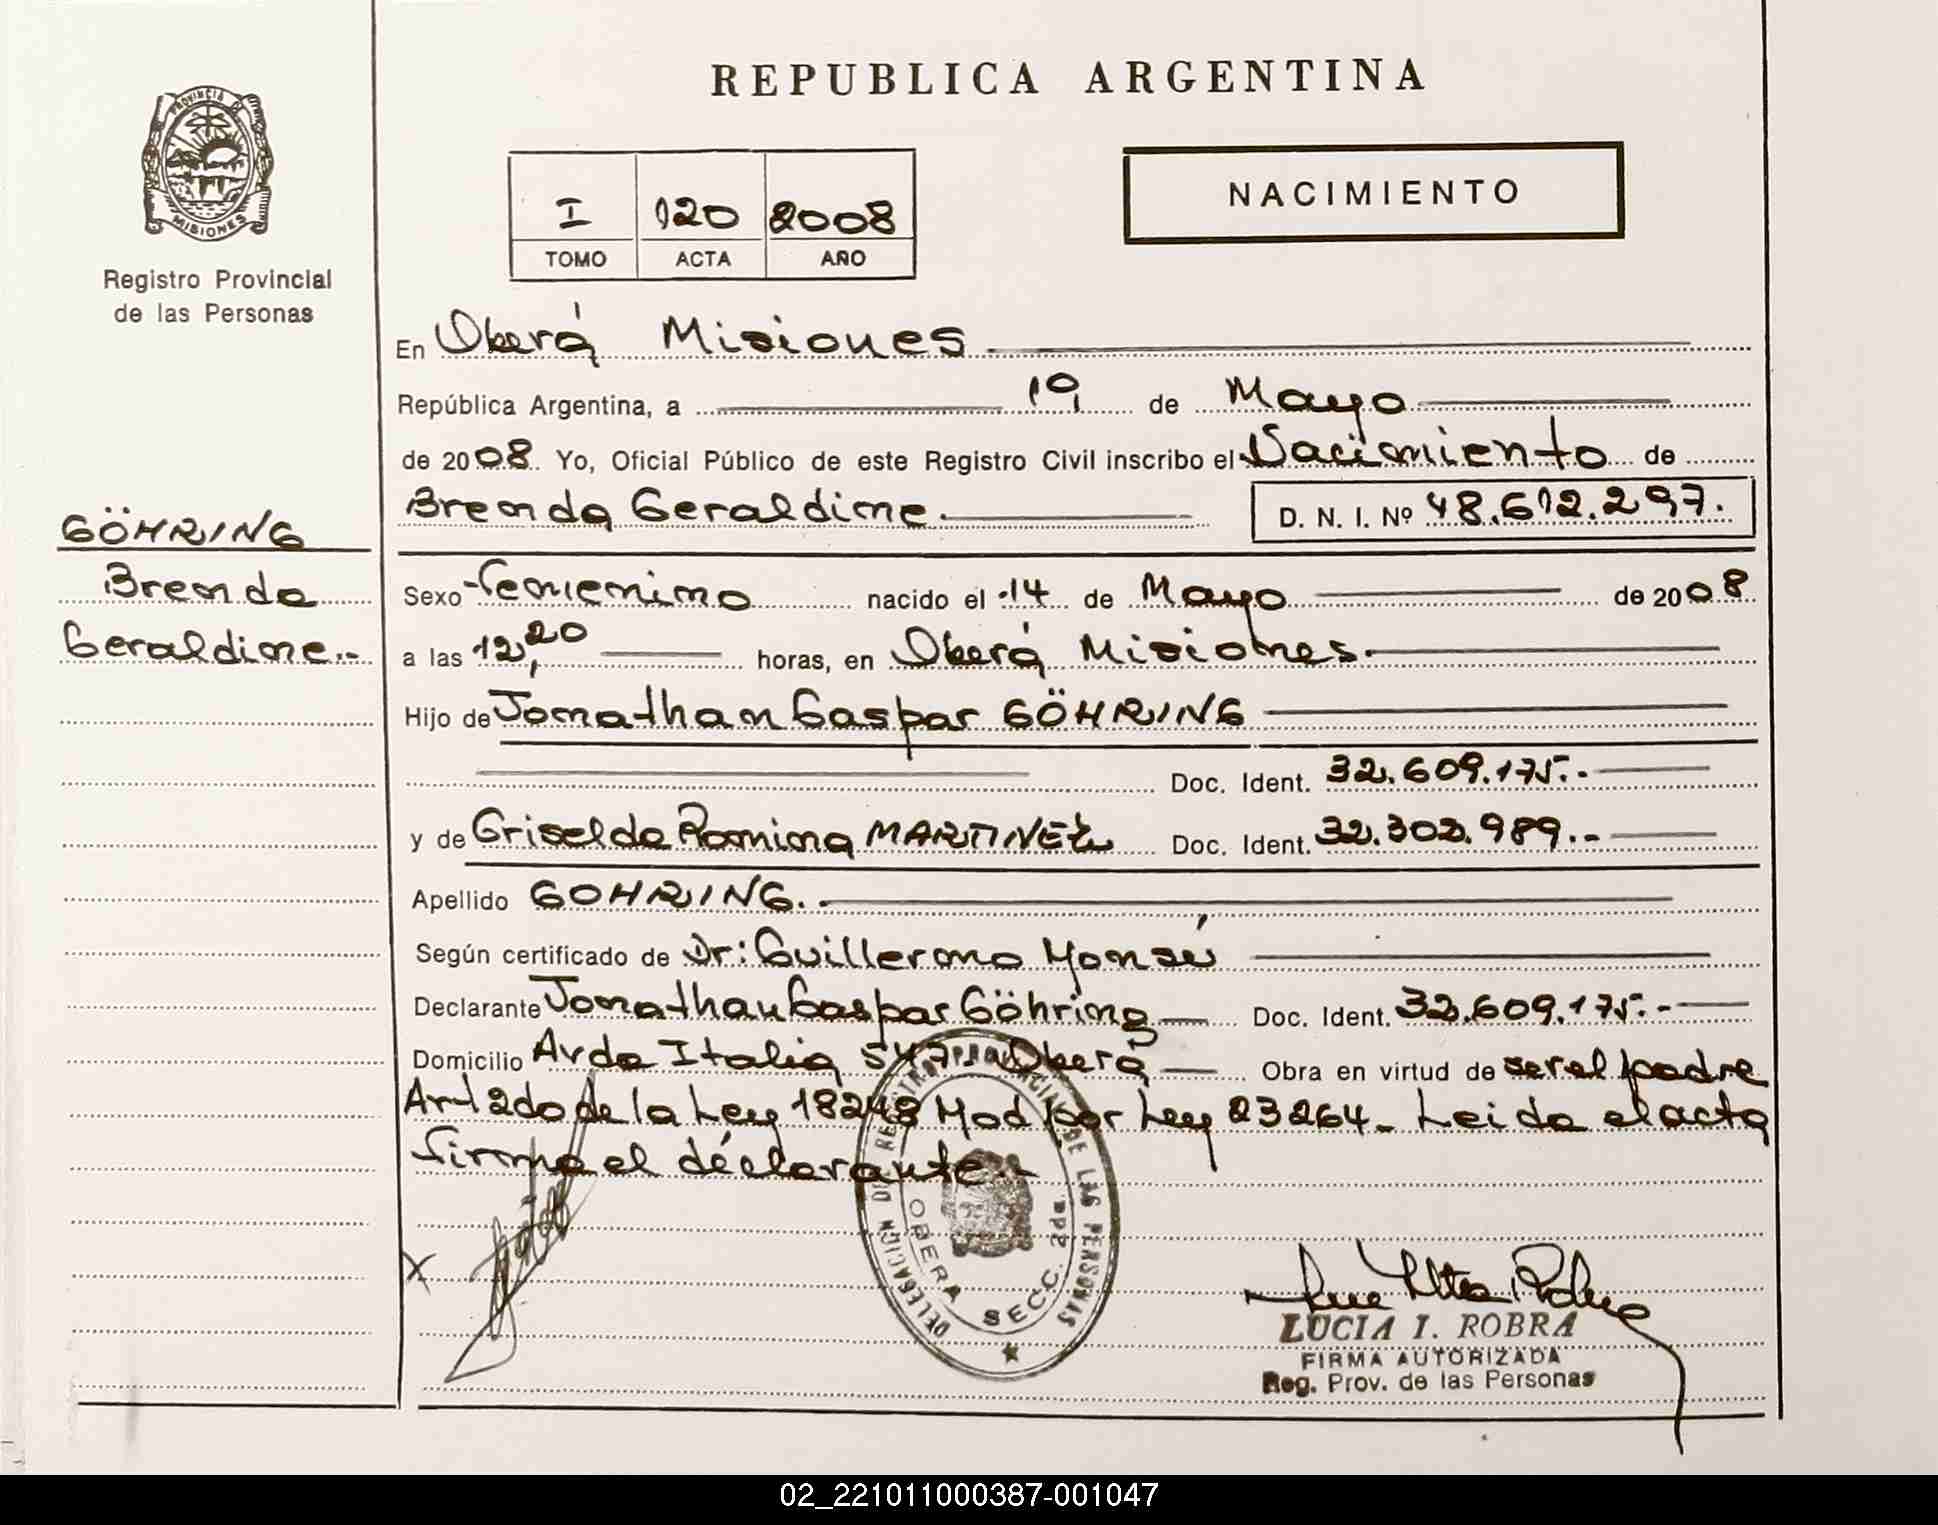 REPUBLICA ARGENTINA
PROVINCIA DE
MISIONES
Registro Provincial
de las Personas
NACIMIENTO
I 120 2008
TOMO ACTA AÑO
En Oberá Misiones
República Argentina, a 19 de Mayo
de 2008. Yo, Oficial Público de este Registro Civil inscribo el Nacimiento de
Brenda Geraldine. D. N. I. Nº 48.612.297.
GÖHRING
Brenda
Geraldine.-
Sexo Femenino nacido el 14 de Mayo de 2008
a las 12,20 horas, en Oberá Misiones.
Hijo de Jonathan Gaspar GÖHRING
Doc. Ident. 32.609.175.-
y de Griselda Romina MARTINEZ Doc. Ident. 32.302.989.-
Apellido GOHRING.
Según certificado de Dr: Guillermo
Declarante Jonathan Gaspar Göhring Doc. Ident. 32.609.175.-
Domicilio Avda Italia 547. Oberá Obra en virtud de ser el padre
Art 2do de la Ley 18248 Mod por Ley 23264. Leida el acta
firma el declarante.-
DELEGACION DEL REGISTRO PROVINCIAL DE LAS PERSONAS
OBERA SECC. 2da.
X
LUCIA I. ROBRA
FIRMA AUTORIZADA
Reg. Prov. de las Personas
02_221011000387-001047